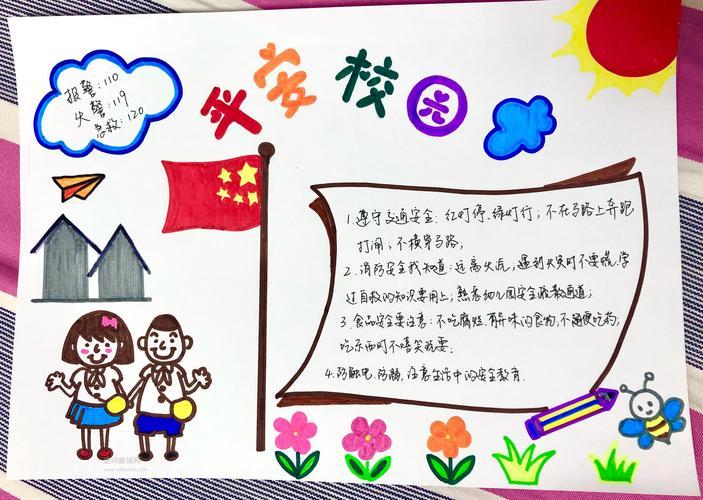 报警:110
火警:119
急救:120
平安校园
1.遵守交通安全:红灯停.绿灯行;不在马路上奔跑
打闹;不横穿马路;
2.消防安全我知道:远离火源,遇到火灾时不要慌,学
过自救的知识要用上;熟悉幼儿园安全疏散通道;
3.食品安全要注意:不吃腐烂.有异味的食物,不随便吃药,
吃东西时不嘻笑玩耍.
4.防触电.防溺,注意生活中的安全教育.